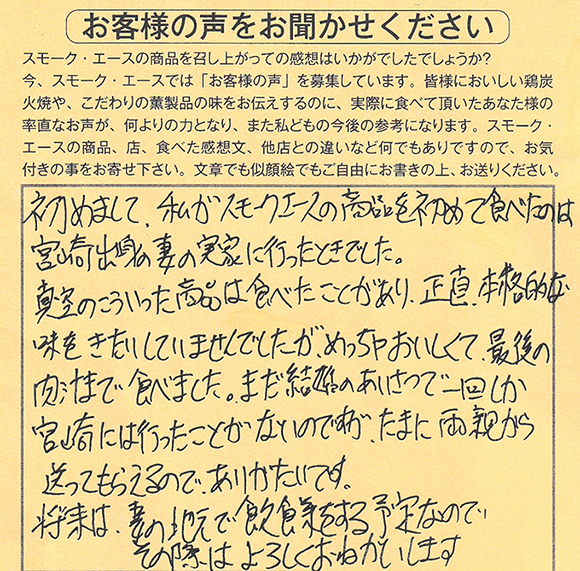 お客様の声をお聞かせください
スモーク・エースの商品を召し上がっての感想はいかがでしたでしょうか?
今、スモーク・エースでは「お客様の声」を募集しています。皆様においしい鶏炭
火焼や、こだわりの薫製品の味をお伝えするのに、実際に食べて頂いたあなた様の
率直なお声が、何よりの力となり、また私どもの今後の参考になります。スモーク・
エースの商品、店、食べた感想文、他店との違いなど何でもありですので、お気
付きの事をお寄せ下さい。文章でも似顔絵でもご自由にお書きの上、お送りください。
初めまして、私がスモークエースの商品を初めて食べたのは
宮崎出身の妻の実家に行ったときでした。
真空のこういった商品は食べたことがあり、正直、本格的な
味をきたいしていませんでしたが、めっちゃおいしくて、最後の
肉汁まで食べました。まだ結婚のあいさつで一回しか
宮崎には行ったことがないのですが、たまに両親から
送ってもらえるので、ありがたいです。
将来は、妻の地元で飲食業をする予定なので、
その際はよろしくおねがいします